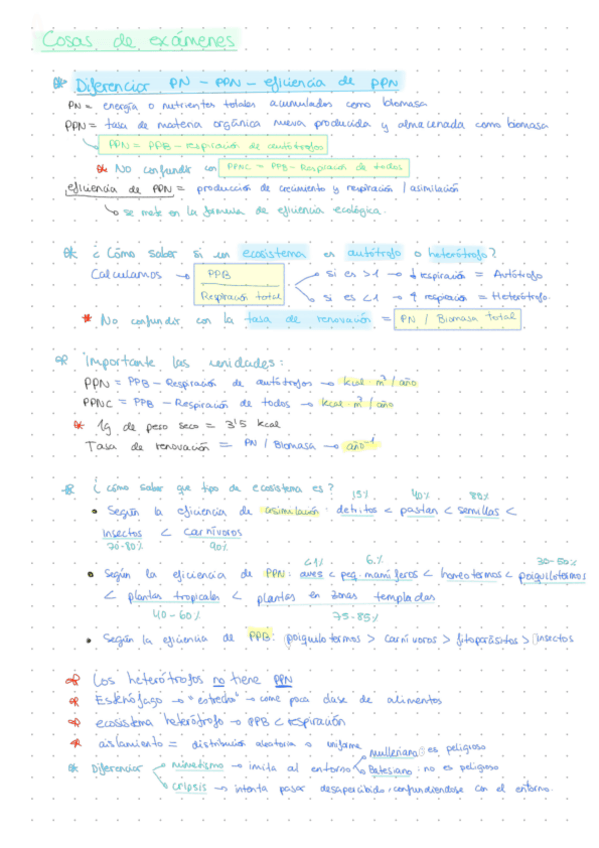 Cosas de exámenes
Diferenciar PN - PPN - eficiencia de PPN
PN = energía o nutrientes totales acumulados como biomasa
PPN = tasa de materia orgánica nueva producida y almacenada como biomasa
PPN = PPB - respiración de autótrofos
No confundir con PPNC = PPB - Respiración de todos
eficiencia de PPN = producción de crecimiento y respiración / asimilación
se mete en la formula de eficiencia ecológica.
¿Cómo saber si un ecosistema es autótrofo o heterótrofo?
Calculamos → PPB / Respiración total
si es >1 → ↓ respiración = Autótrofo
si es <1 → ↑ respiración = Heterótrofo.
* No confundir con la tasa de renovación = PN / Biomasa total
Importante las unidades:
PPN = PPB - Respiración de autótrofos → kcal · m² / año
PPNC = PPB - Respiración de todos → kcal · m² / año
* 1g de peso seco = 3'5 kcal
Tasa de renovación = PN / Biomasa → año⁻¹
¿cómo saber que tipo de ecosistema es?
15% 40% 80%
• Según la eficiencia de asimilación: detritos < pastan < semillas <
insectos < carnívoros
70-80% 90%
<1% 6% 30-50%
• Según la eficiencia de PPN: aves < peq. mamíferos < homeotermos < poiquilotermos
< plantas tropicales < plantas en zonas templadas
40-60% 75-85%
• Según la eficiencia de PPB: poiquilotermos > carnívoros > fitoparásitos > insectos
Los heterótrofos no tiene PPN
Estenófago → "estrecho" → come poca clase de alimentos
ecosistema heterótrofo → PPB < respiración
* aislamiento = distribución aleatoria o uniforme
mulleriano: es peligroso
Diferenciar mimetismo → imita al entorno
Batesiano: no es peligroso
cripsis → intenta pasar desapercibido, confundiendose con el entorno.